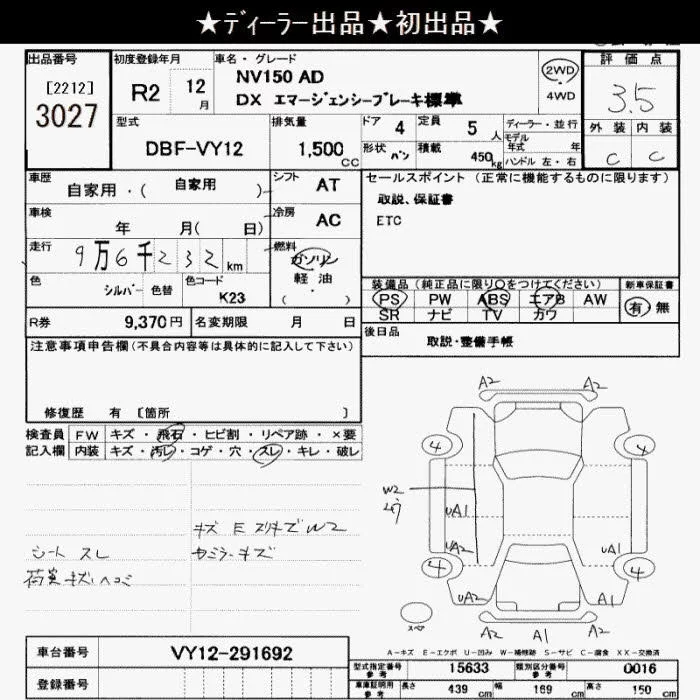 ★ディーラー出品★初出品★
出品番号
[2212]
3027
初度登録年月
R2 12月
車名・グレード
NV150 AD
DX エマージェンシーブレーキ標準
2WD
・
4WD
評価点
3.5
外装 内装
C C
型式
DBF-VY12
排気量
1,500 CC
ドア 4
定員 5 人
形状 バン
積載 450 kg
ディーラー・並行
モデル年式 年
ハンドル 左・右
車歴
自家用・( 自家用 )
シフト AT
車検
年 月( 日)
冷房 AC
走行
9万6千232 km
燃料
ガソリン
軽油
・
( )
色
シルバー 色替
色コード
K23
セールスポイント (正常に機能するものに限ります)
取説、保証書
ETC
装備品 (純正品に限り○をつけてください)
PS PW ABS エアB AW
SR ナビ TV カワ
新車保証書
有 無
R券 9,370円
名変期限 月 日
後日品
取説・整備手帳
注意事項申告欄(不具合内容等は具体的に記入して下さい)
修復歴 有 [箇所 ]
検査員記入欄
FW キズ・飛石・ヒビ割・リペア跡・×要
内装 キズ・汚レ・コゲ・穴・スレ・キレ・破レ
キズ E スリキズ W2
シート スレ
キズ
荷室 キズ ヘコミ
A2 A2
4 4
W2
UA1
UA2 UA1
4 4
UA2 A1
A2 A1 A2
スペア
A-キズ E-エクボ U-凹み W-補修跡 S-サビ C-腐食 XX-交換済
車台番号
VY12-291692
登録番号
型式指定番号参考 15633
類別区分番号参考 0016
車庫証明用参考 長さ 439 cm 幅 169 cm 高さ 150 cm